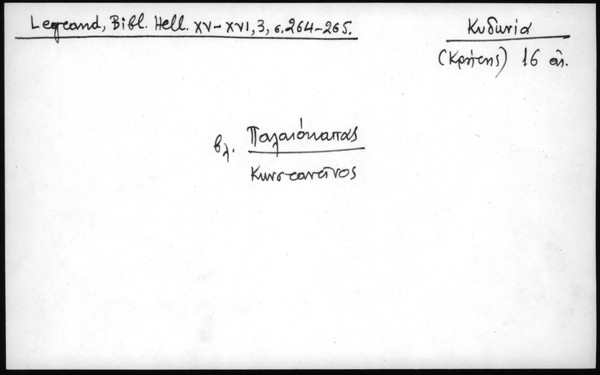 Legrand, Bibl. Hell. XV–XVI, 3, σ. 264–265.
Κυδωνία
(Κρήτης) 16 αἰ.
βλ. Παλαιόκαπας
Κωνσταντῖνος